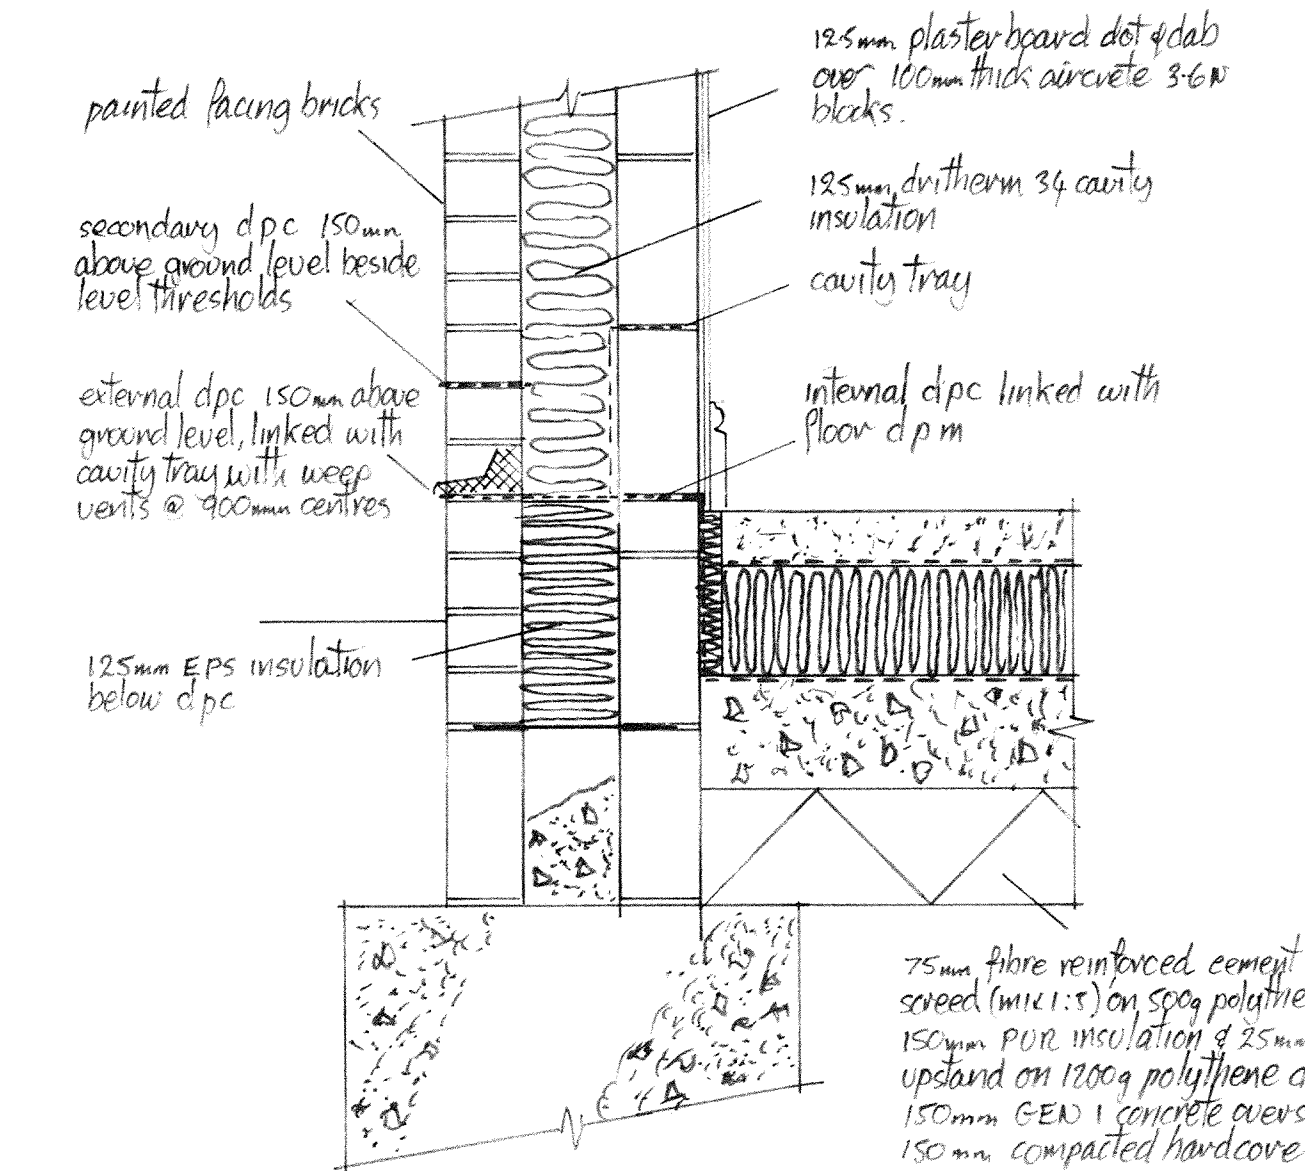 painted facing bricks
secondary dpc 150mm
above ground level beside
level thresholds
external dpc 150mm above
ground level, linked with
cavity tray with weep
vents @ 900mm centres
125mm EPS insulation
below dpc
12.5mm plasterboard dot & dab
over 100mm thick aircrete 3.6N
blocks.
125mm dritherm 34 cavity
insulation
cavity tray
internal dpc linked with
floor dpm
75mm fibre reinforced cement
screed (mix 1:3) on 500g polythe
150mm PUR insulation & 25mm
upstand on 1200g polythene d
150mm GEN 1 concrete overs
150mm compacted hardcore